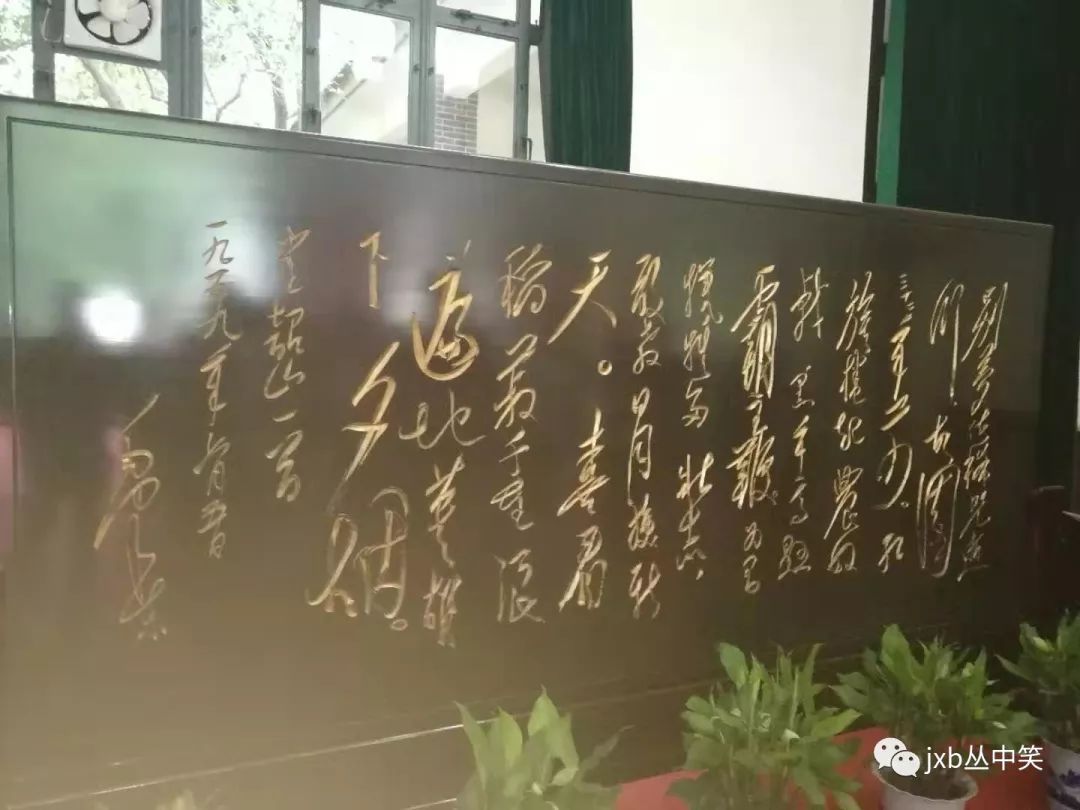 別夢依稀咒逝
川，故园
三十二年前。紅
旗捲起農奴
戟黑手高懸
霸主鞭。为有
犧牲多壮志，
敢教日月換新
天。喜看
稻菽千重浪
遍地英雄
下夕烟。
韶山一首
一九五九年
毛泽东
jxb丛中笑